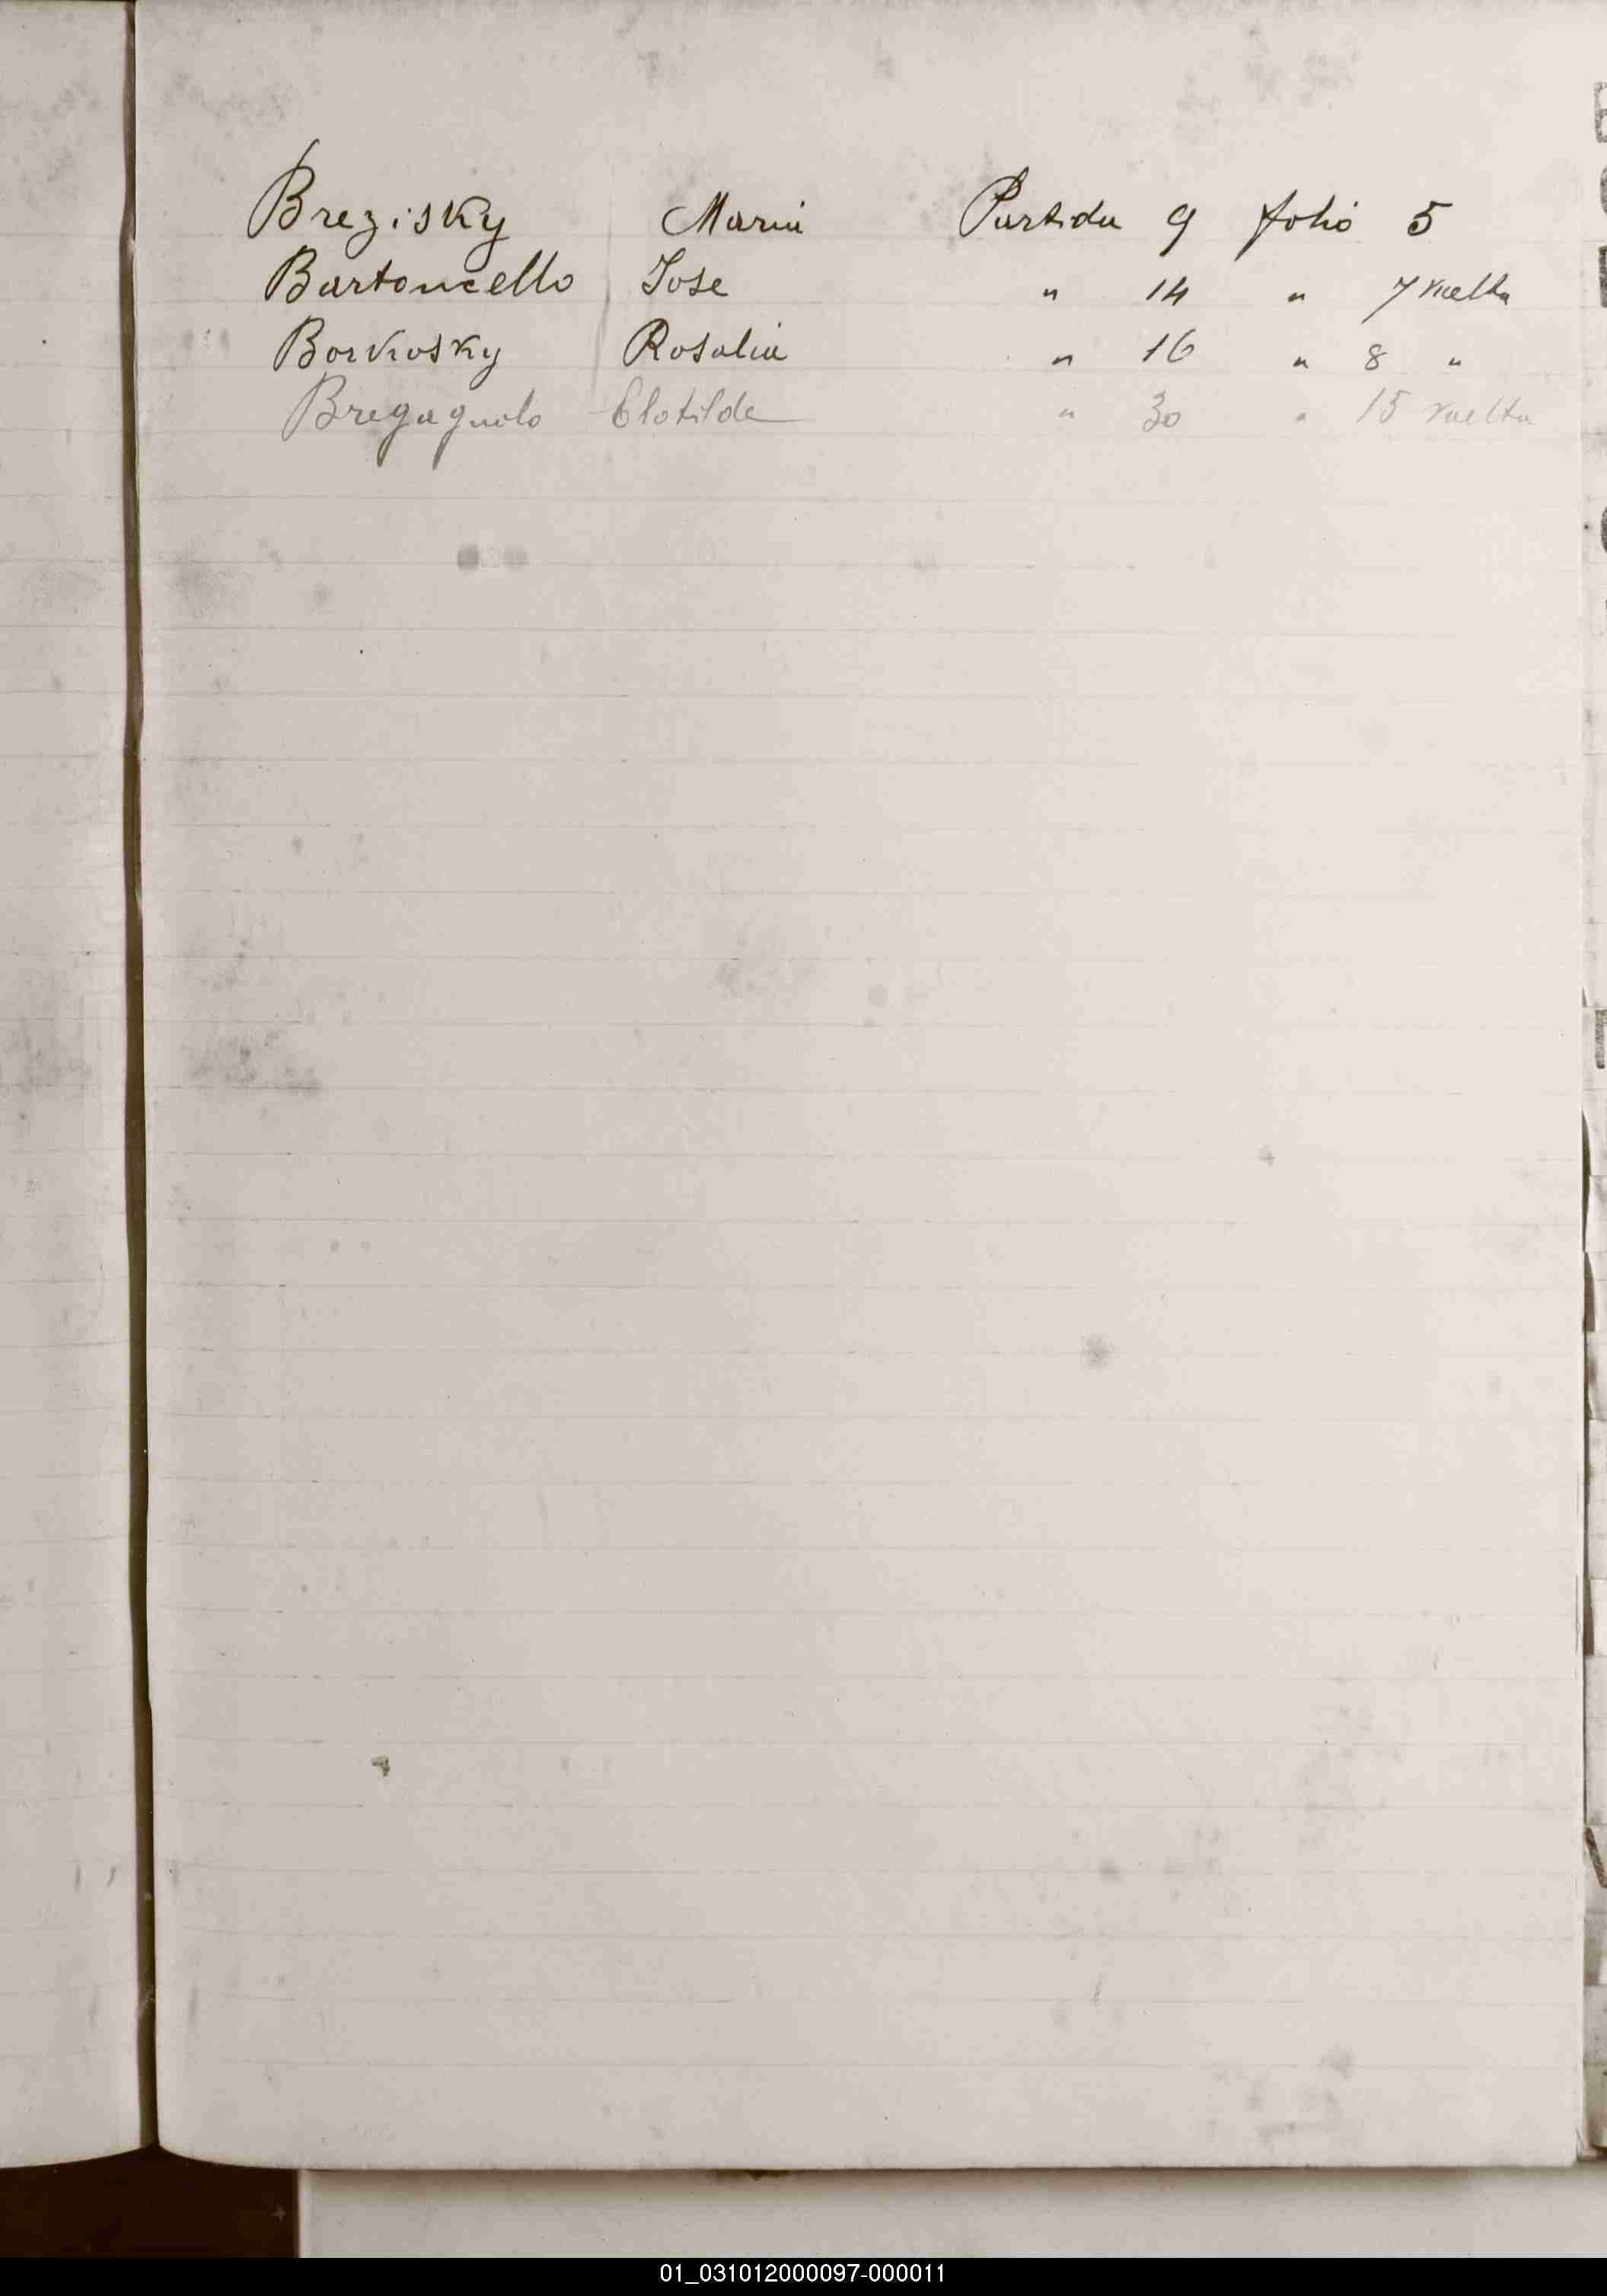 Brezisky Maria Partida 9 folio 5
Bartoncello Jose " 14 " 7 vuelta
Borkosky Rosalia " 16 " 8 "
Bregagnolo Clotilde " 30 " 15 vuelta
01_031012000097-000011